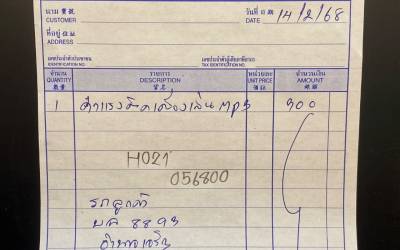 นาม 寶號 วันที่ 日期
CUSTOMER DATE 14/2/68
ที่อยู่ 住址
ADDRESS
เลขประจำตัวประชาชน เลขประจำตัวผู้เสียภาษีอากร
IDENTIFICATION NO. TAX IDENTIFICATION NO.
จำนวน รายการ หน่วยละ จำนวนเงิน
QUANTITY DESCRIPTION UNIT PRICE AMOUNT
數量 貨名 價錢 銀碼
1 ค่าแรงติดเครื่องเล่น MP3 900
H021
056800
รถลูกค้า
บล 8893
อำนาจเจริญ